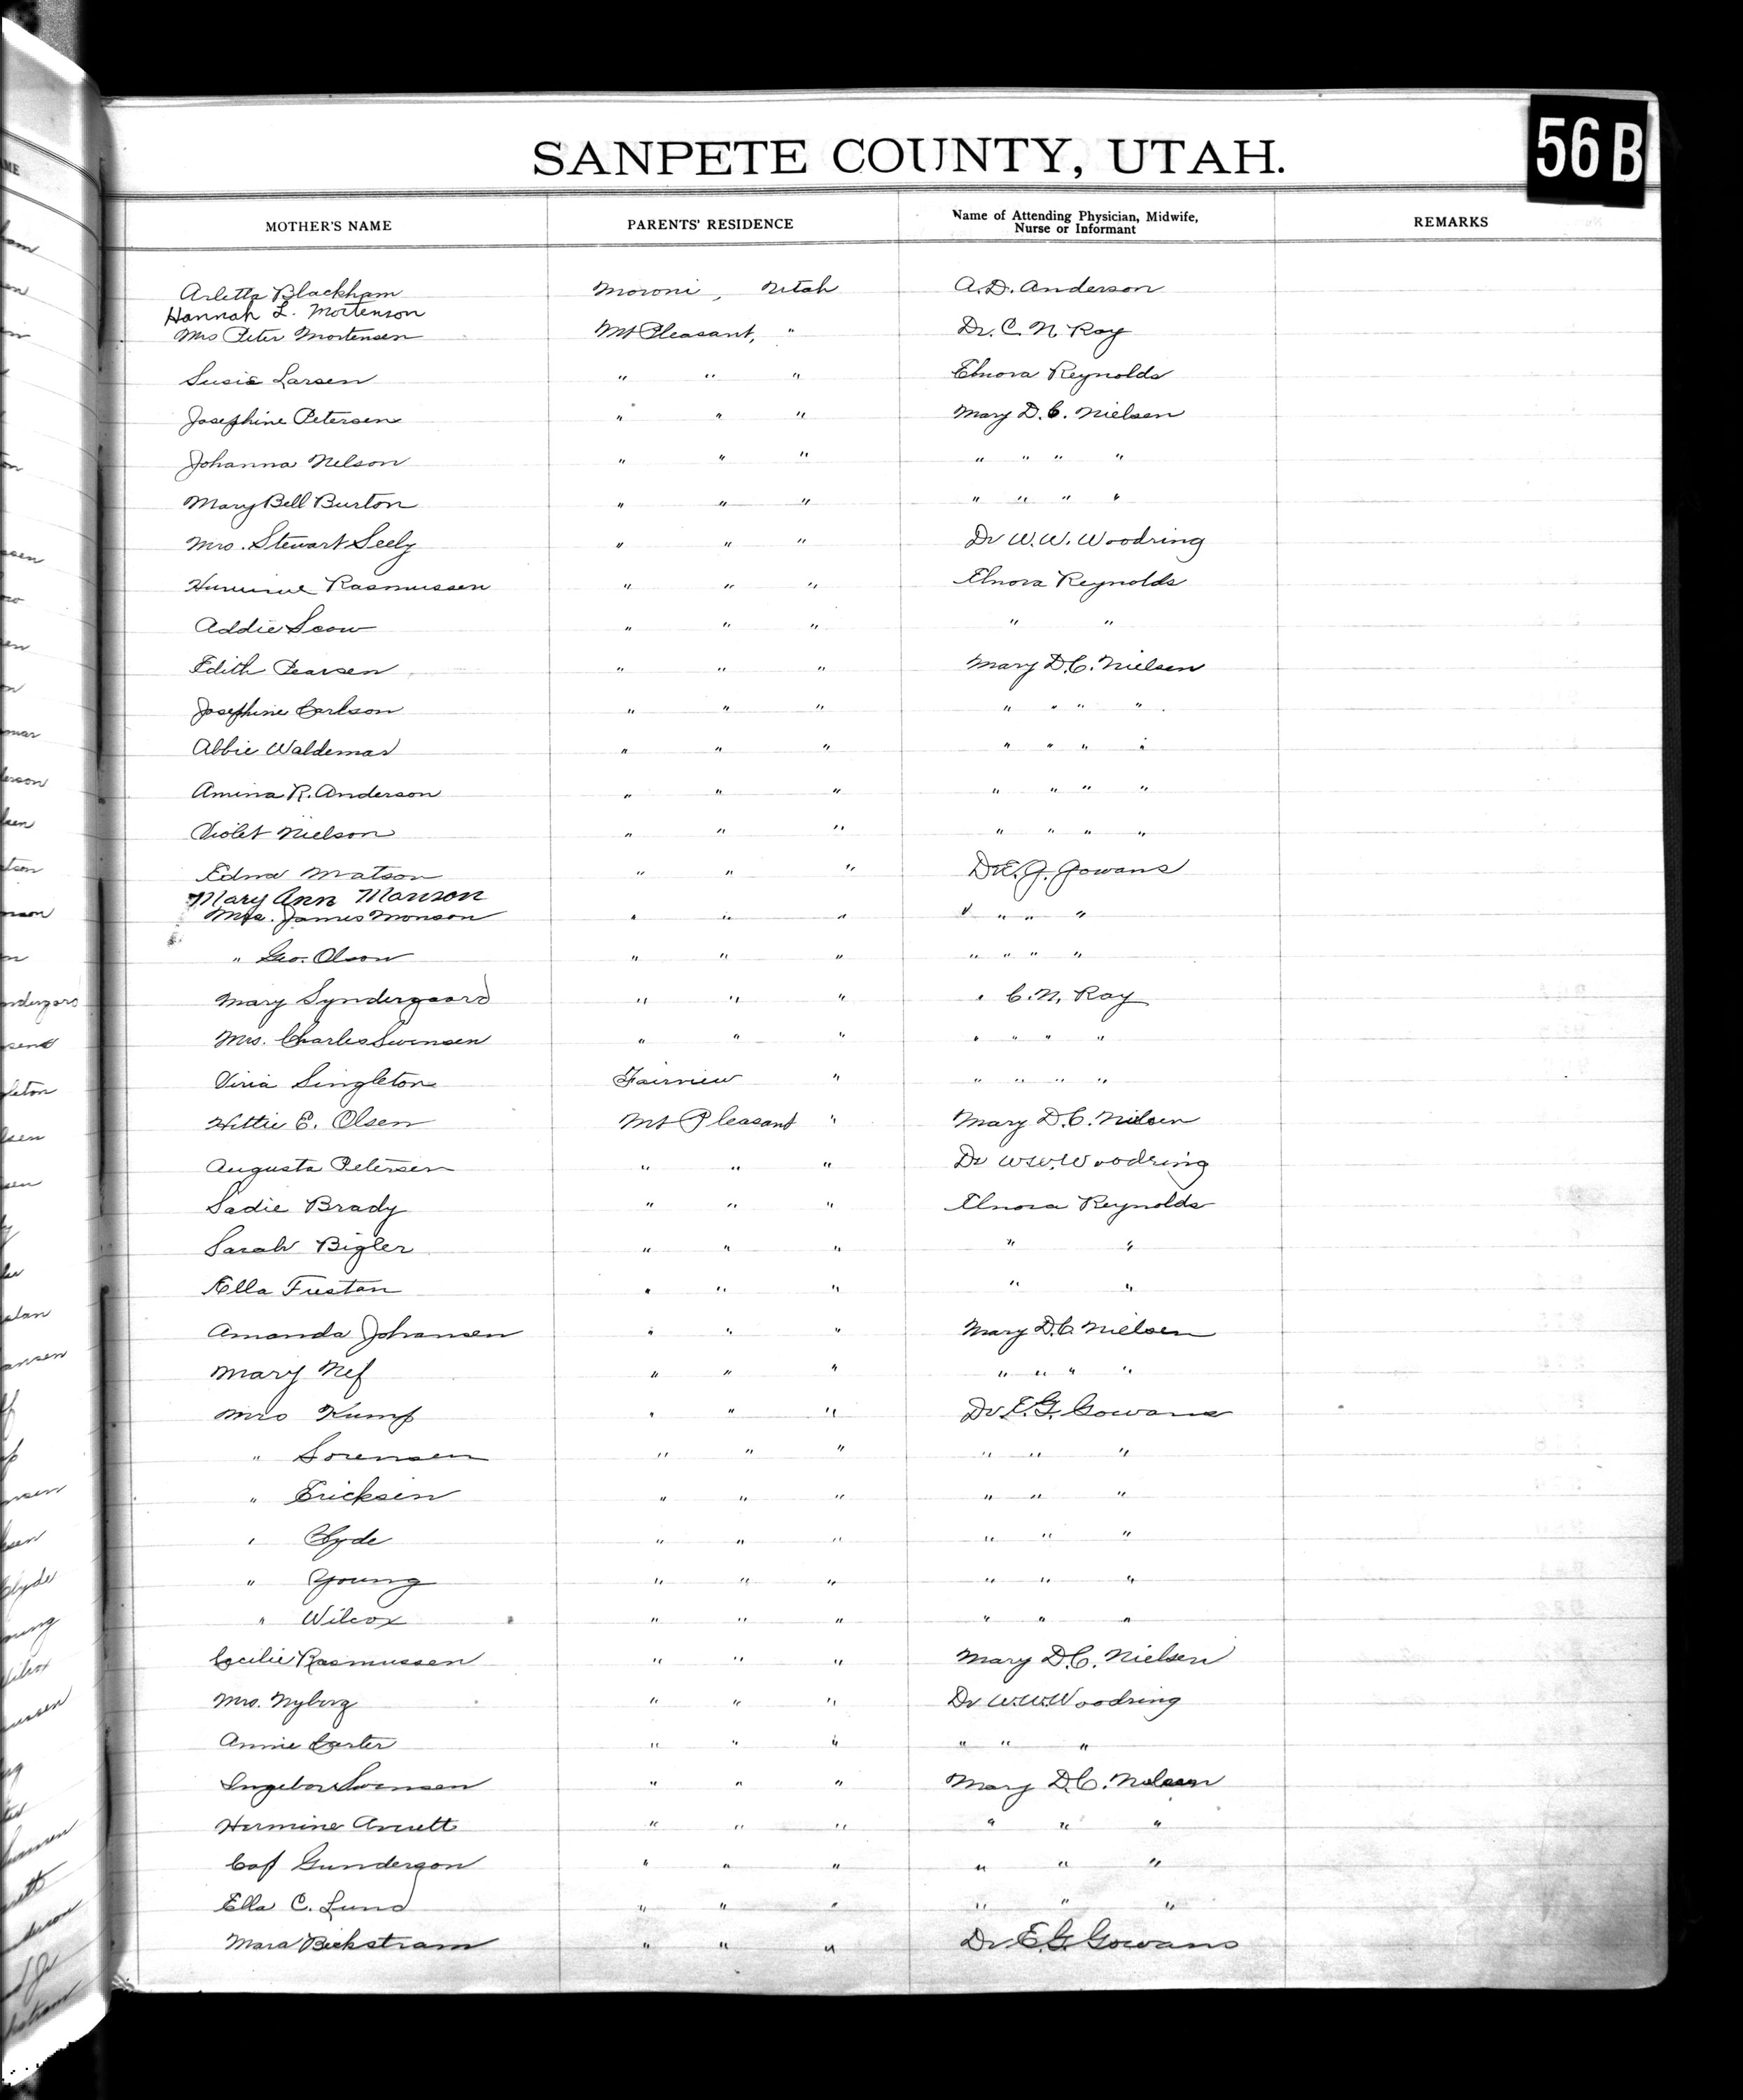 SANPETE COUNTY, UTAH.
56 B
MOTHER'S NAME PARENTS' RESIDENCE Name of Attending Physician, Midwife, Nurse or Informant REMARKS
Arletta Blackham Moroni, Utah A.D. Anderson
Hannah L. Mortenson
Mrs Peter Mortensen Mt Pleasant, " Dr. C. N. Ray
Susie Larsen " " " Elnora Reynolds
Josephine Petersen " " " Mary D. C. Nielsen
Johanna Nelson " " " " " " "
Mary Bell Burton " " " " " " "
Mrs. Stewart Seely " " " Dr W. W. Woodring
Rasmussen " " " Elnora Reynolds
Addie Scow " " " " "
Edith Pearsen " " " Mary D. C. Nielsen
Josephine Carlson " " " " " " "
Abbie Waldemar " " " " " " "
Amina R. Anderson " " " " " " "
Violet Nielson " " " " " " "
Edna Matson " " " Dr E. G. Gowans
Mary Ann Monson
Mrs. James Monson " " " " " " "
" Geo. Olson " " " " " " "
Mary Syndergaard " " " " C. N. Ray
Mrs. Charles Swensen " " " " " " "
Viria Singleton Fairview " " " " "
Hittie E. Olsen Mt Pleasant " Mary D. C. Nielsen
Augusta Petersen " " " Dr W.W. Woodring
Sadie Brady " " " Elnora Reynolds
Sarah Bigler " " " " "
Ella Fustan " " " " "
Amanda Johansen " " " Mary D. C. Nielsen
Mary Nef " " " " " " "
Mrs Kump " " " Dr E. G. Gowans
" Sorensen " " " " " "
" Ericksen " " " " " "
" Clyde " " " " " "
" Young " " " " " "
" Wilcox " " " " " "
Cecilie Rasmussen " " " Mary D. C. Nielsen
Mrs. Nyborg " " " Dr W.W. Woodring
Annie Carter " " " " " "
Ingebor Swensen " " " Mary D. C. Nielsen
Hermine Averett " " " " " "
Gunderson " " " " " "
Ella C. Lund " " " " " "
Mara Beckstram " " " Dr E. G. Gowans